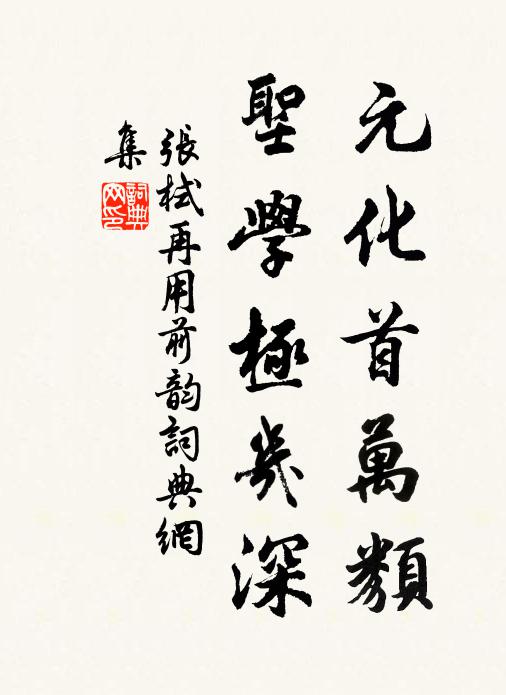 元化首萬類
聖學極幾深
張栻再用前韵詞典網
集
詞典网印